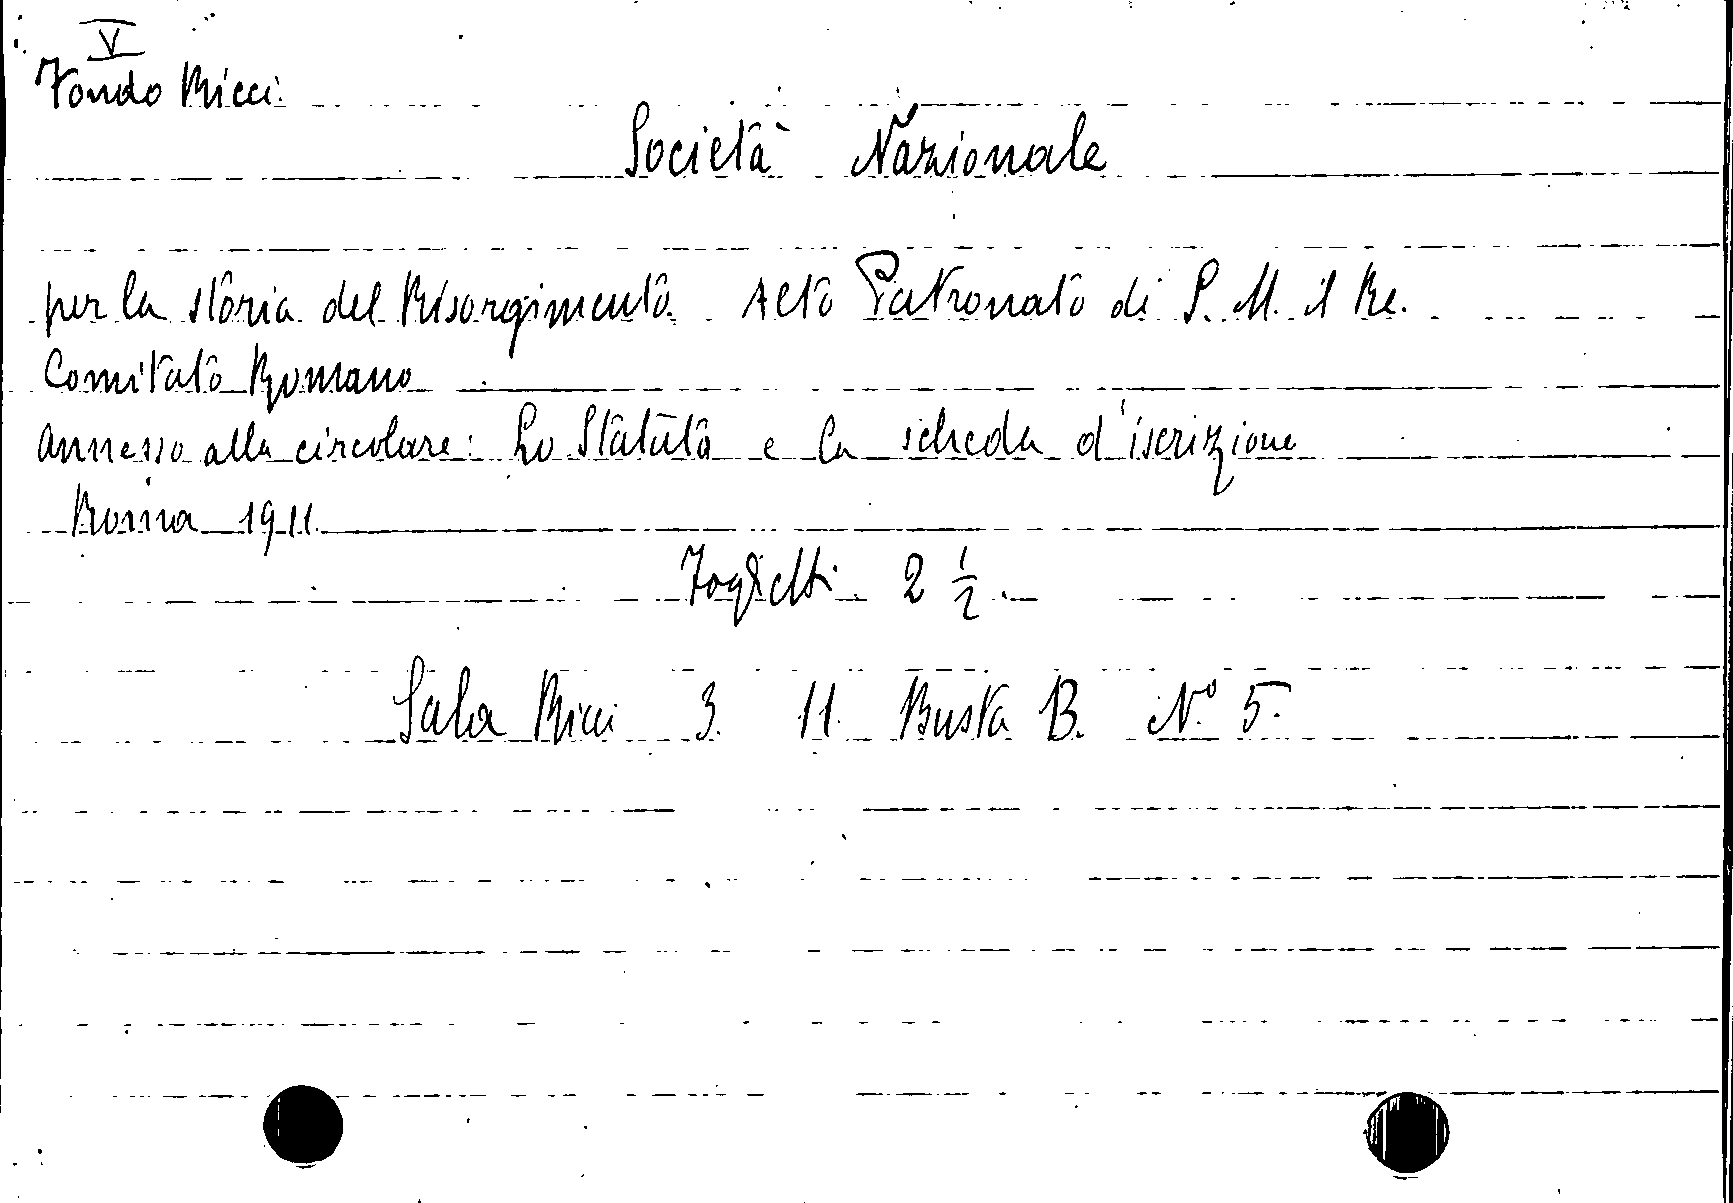 V
Fondo Ricci.
Società Nazionale
per la storia del Risorgimento. Alto Patronato di S. M. il Re.
Comitato Romano
annesso alla circolare: Lo Statuto e la scheda d'iscrizione
Roma 1911.
Foglietti 2 1/2.
Sala Ricci 3. 11. Busta B. N.° 5.